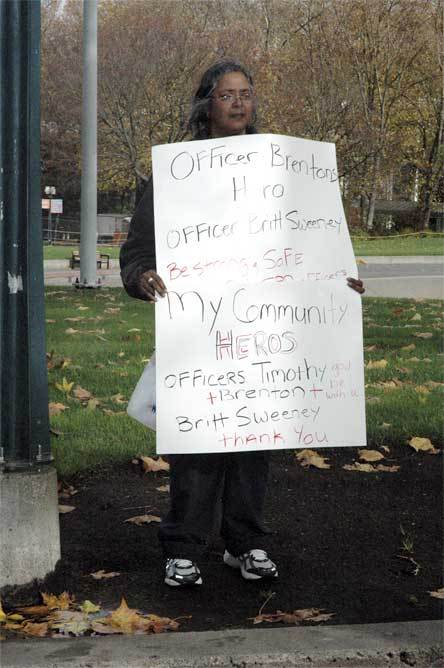 Officer Brentons
Hiro
Officer Britt Sweeney
Be strong & Safe
My Community
HEROS
OFFICERS Timothy god
+ Brenton + be
with u
Britt Sweeney
thank You